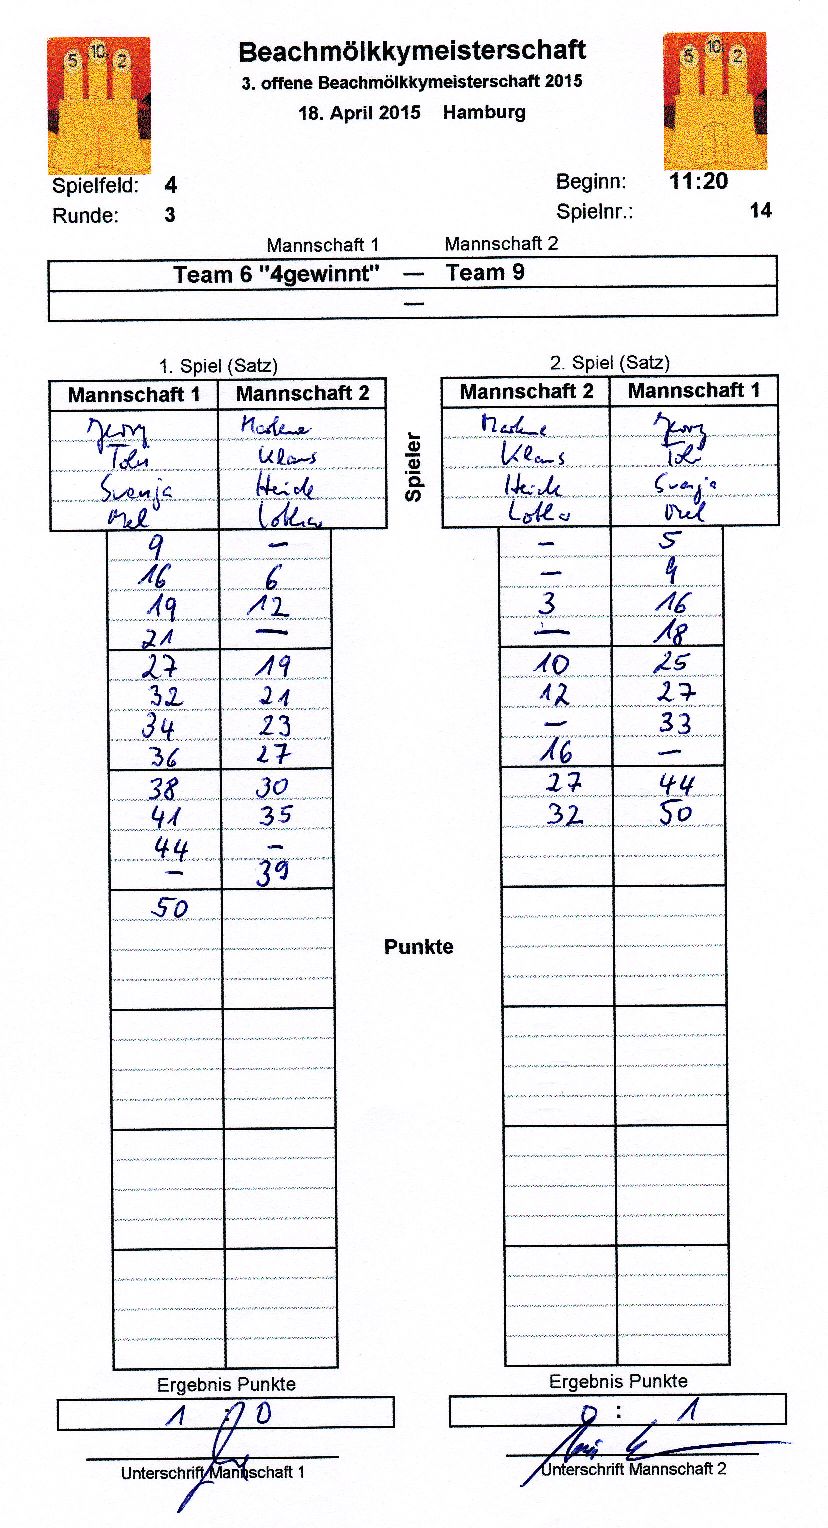 5 10 2
Beachmölkkymeisterschaft
5 10 2
3. offene Beachmölkkymeisterschaft 2015
18. April 2015 Hamburg
Spielfeld: 4 Beginn: 11:20
Runde: 3 Spielnr.: 14
Mannschaft 1 Mannschaft 2
Team 6 "4gewinnt" — Team 9
—
1. Spiel (Satz) 2. Spiel (Satz)
Mannschaft 1 Mannschaft 2 Mannschaft 2 Mannschaft 1
Marlene Marlene
Klaus Klaus
Svenja Heide Spieler Heide Svenja
Lothar
9 – – 5
16 6 – 9
19 12 3 16
21 – – 18
27 19 10 25
32 21 12 27
34 23 – 33
36 27 16 –
38 30 27 44
41 35 32 50
44 –
– 39
50
Punkte
Ergebnis Punkte Ergebnis Punkte
1 : 0 0 : 1
Unterschrift Mannschaft 1 Unterschrift Mannschaft 2